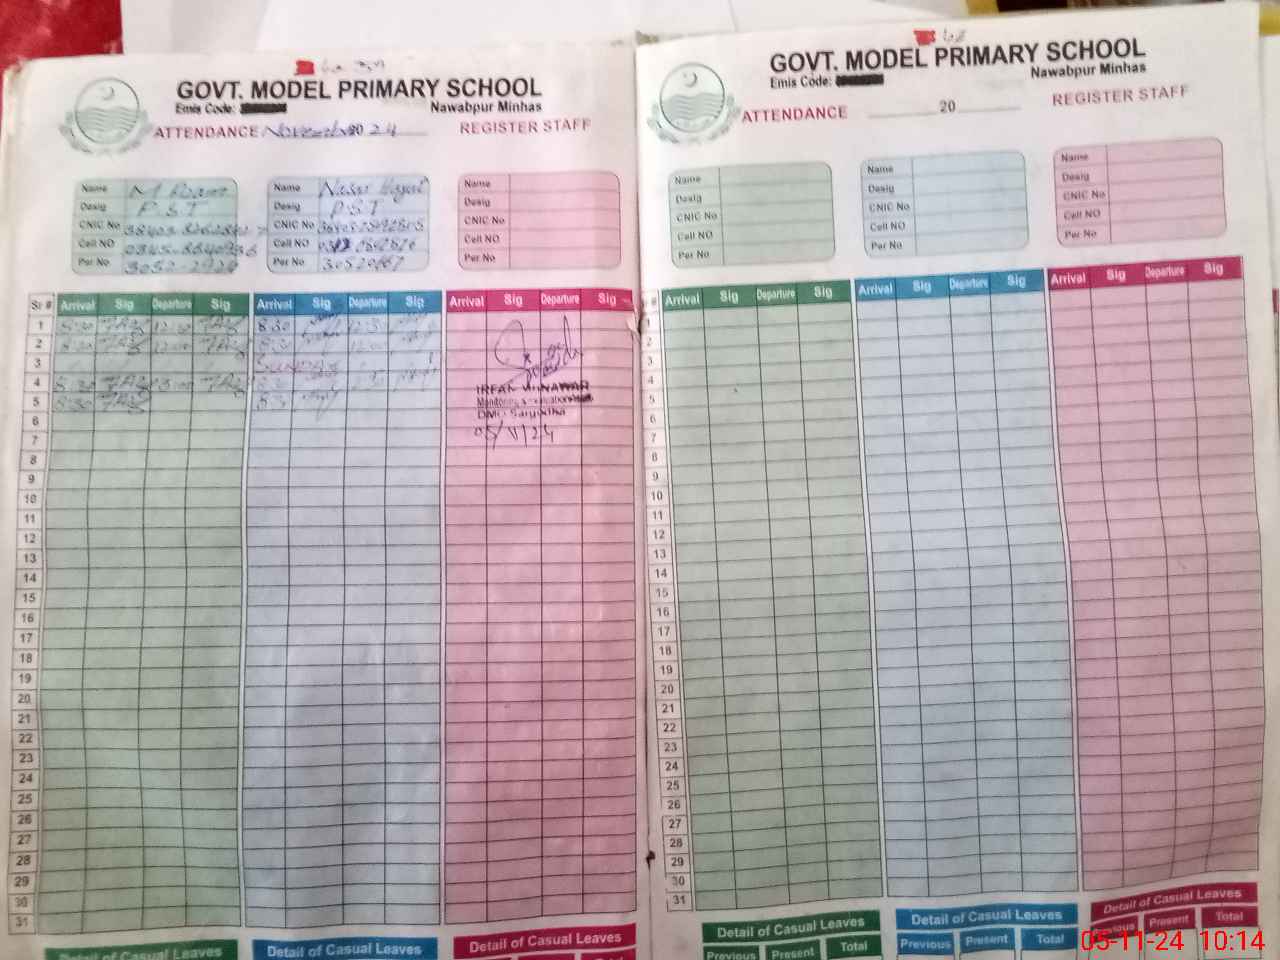 GOVT. MODEL PRIMARY SCHOOL
Emis Code:
Nawabpur Minhas
ATTENDANCE November 2024 REGISTER STAFF
Name M
Desig P.S.T
CNIC No
Cell NO
Per No
Name Nasir Hayat
Desig P.S.T
CNIC No
Cell NO
Per No
Name
Desig
CNIC No
Cell NO
Per No
Sr # Arrival Sig Departure Sig Arrival Sig Departure Sig Arrival Sig Departure Sig
1 8:30 12:30 8:30 12:30
2 8:30 12:00 8:30 12:00
3 Sunday
4 8:30 8:30
5 8:30 8:30
6
7
8
9
10
11
12
13
14
15
16
17
18
19
20
21
22
23
24
25
26
27
28
29
30
31
IRFAN MUNAWAR
DMO Sargodha
05/11/24
Detail of Casual Leaves Detail of Casual Leaves Detail of Casual Leaves
GOVT. MODEL PRIMARY SCHOOL
Emis Code:
Nawabpur Minhas
ATTENDANCE 20 REGISTER STAFF
Name
Desig
CNIC No
Cell NO
Per No
Name
Desig
CNIC No
Cell NO
Per No
Name
Desig
CNIC No
Cell NO
Per No
# Arrival Sig Departure Sig Arrival Sig Departure Sig Arrival Sig Departure Sig
1
2
3
4
5
6
7
8
9
10
11
12
13
14
15
16
17
18
19
20
21
22
23
24
25
26
27
28
29
30
31
Detail of Casual Leaves Detail of Casual Leaves Detail of Casual Leaves
Previous Present Total Previous Present Total Previous Present Total
05-11-24 10:14